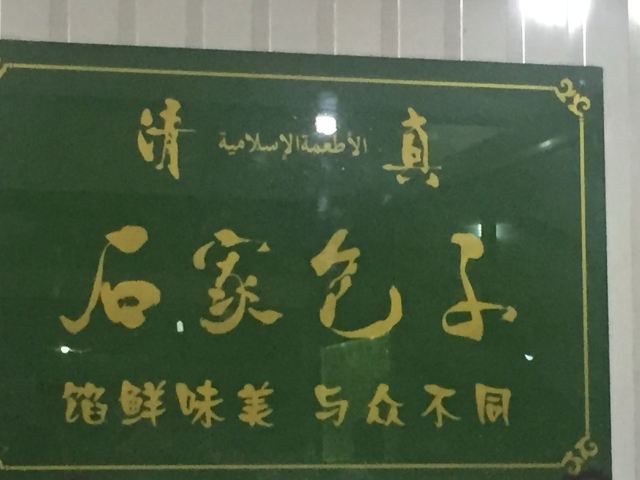 清 الأطعمة الإسلامية 真
石家包子
馅鲜味美 与众不同